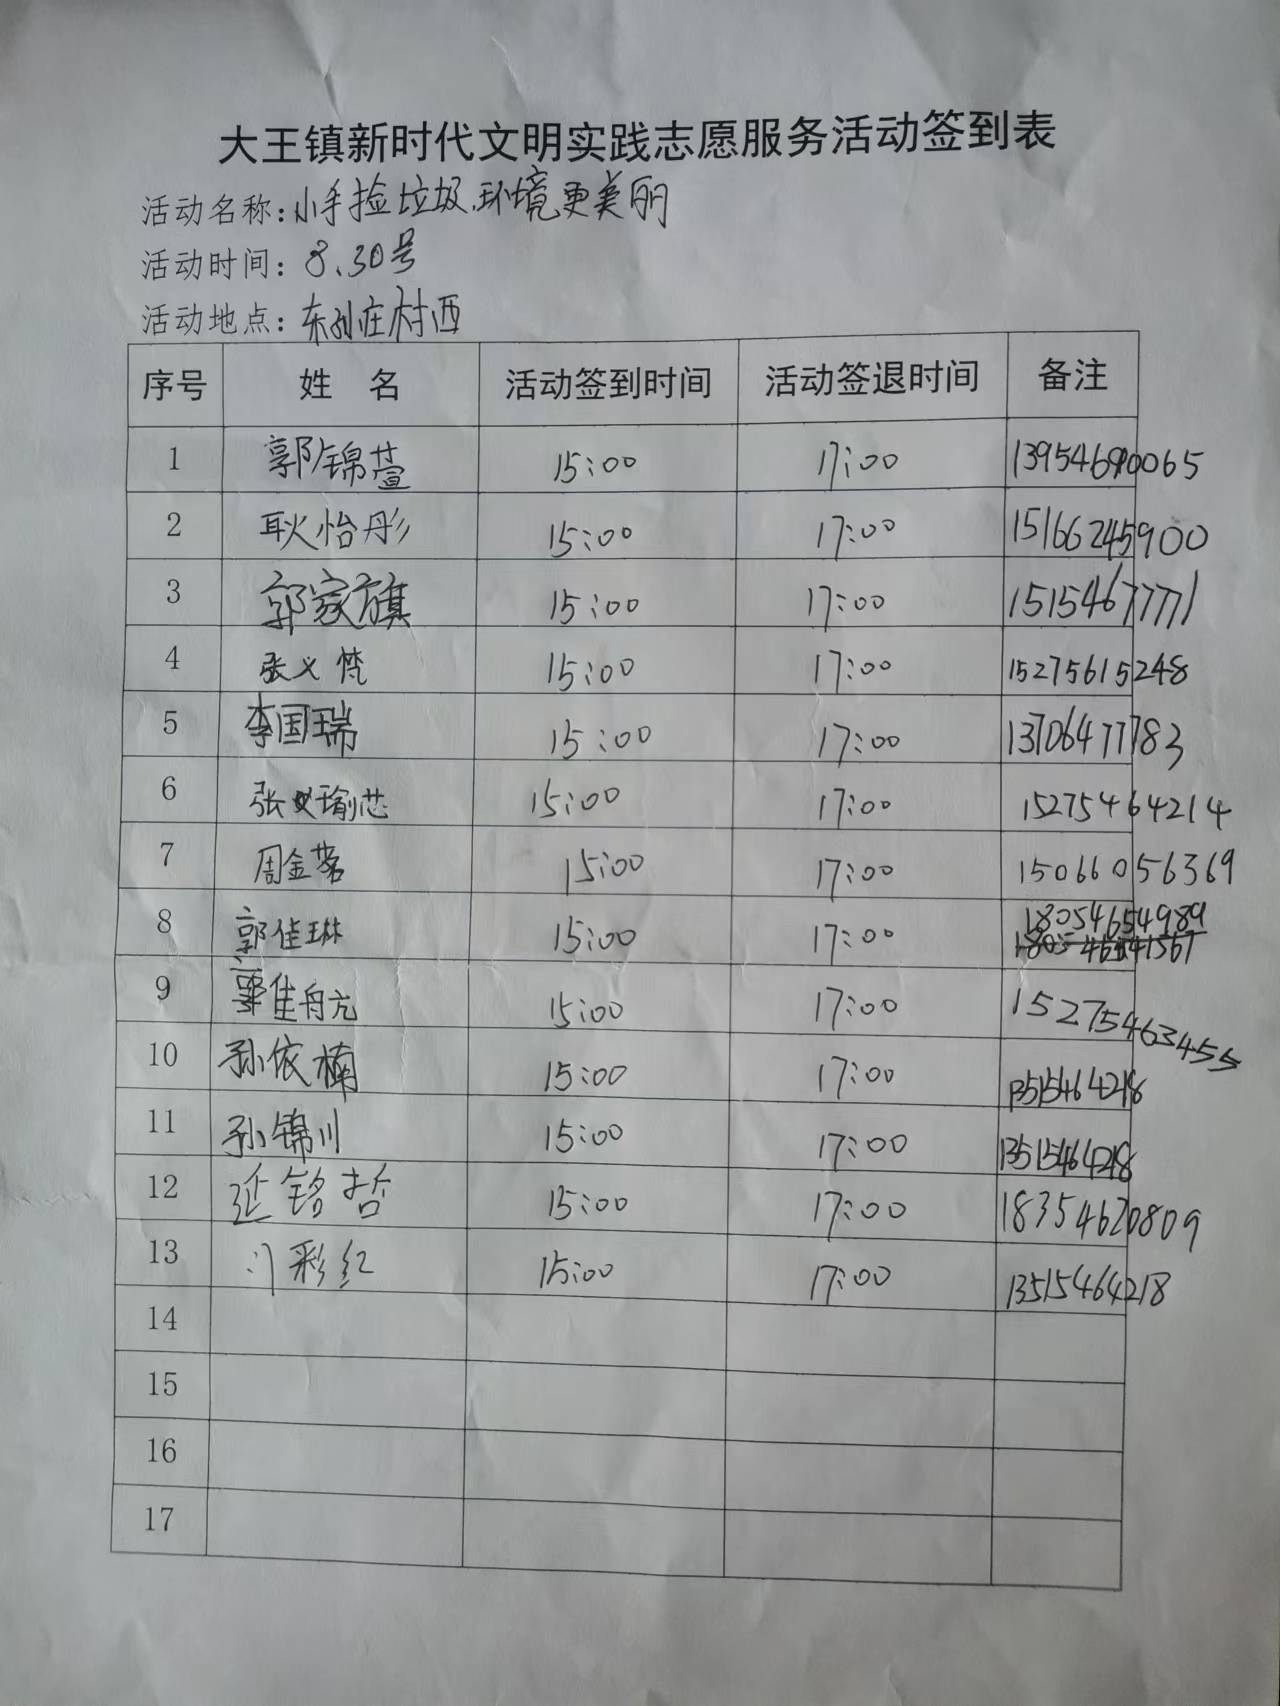 大王镇新时代文明实践志愿服务活动签到表
活动名称:小手捡垃圾.环境更美丽
活动时间:8.30号
活动地点:东孙庄村西
序号 姓 名 活动签到时间 活动签退时间 备注
1 郭锦萱 15:00 17:00 13954690065
2 耿怡彤 15:00 17:00 15166245900
3 郭家旗 15:00 17:00 15154677771
4 张义梵 15:00 17:00 15275615248
5 李国瑞 15:00 17:00 13706477783
6 张瑜芯 15:00 17:00 15275464214
7 周金茗 15:00 17:00 15066056369
8 郭佳琳 15:00 17:00 18054654989
9 15:00 17:00 15275463455
10 孙依楠 15:00 17:00 13515464218
11 孙锦川 15:00 17:00 13515464218
12 延铭哲 15:00 17:00 18354620809
13 彩红 15:00 17:00 13515464218
14
15
16
17